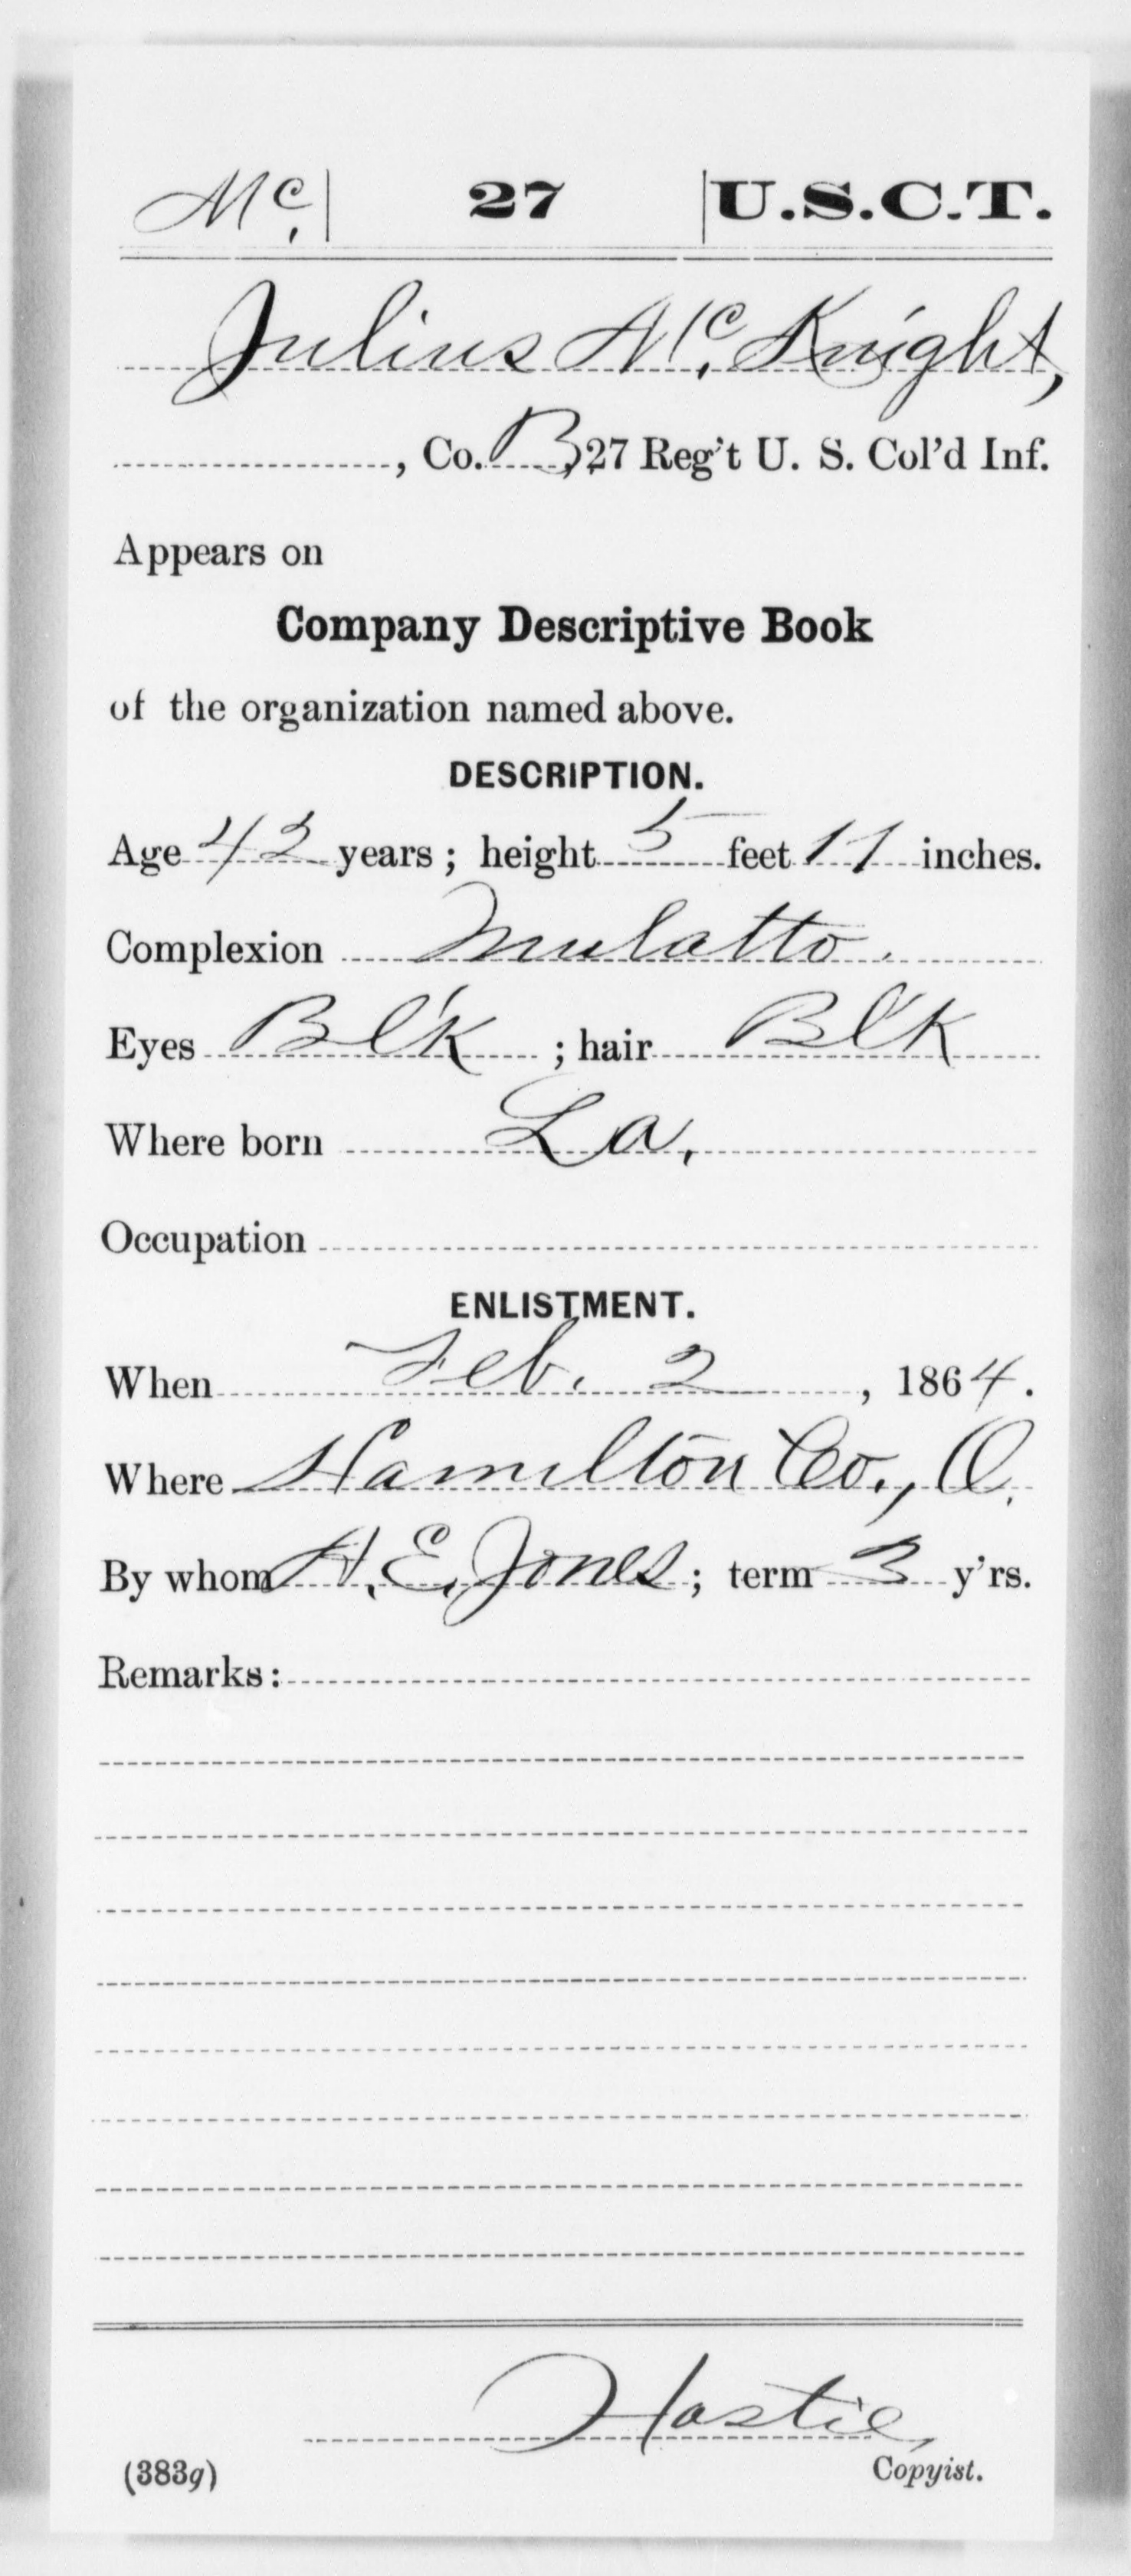 Mc, 27 U.S.C.T.
Julius Mc,Knight,
, Co. B, 27 Reg't U. S. Col'd Inf.
Appears on
Company Descriptive Book
of the organization named above.
DESCRIPTION.
Age 42 years; height 5 feet 11 inches.
Complexion Mulatto.
Eyes Bl'k; hair Bl'k
Where born La,
Occupation
ENLISTMENT.
When Feb. 2, 1864.
Where Hamilton Co., O.
By whom H. E. Jones; term 3 y'rs.
Remarks:
Hastie,
(383g) Copyist.